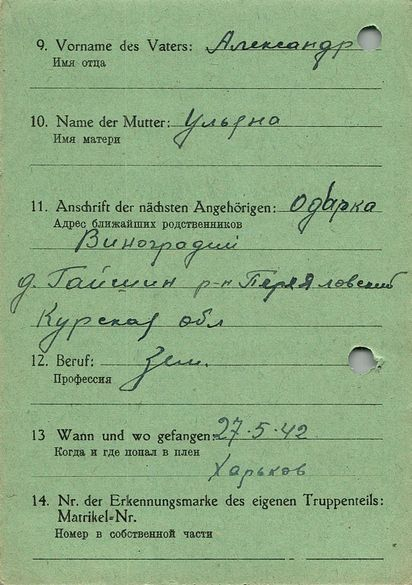 9. Vorname des Vaters: Александр
Имя отца
10. Name der Mutter: Ульяна
Имя матери
11. Anschrift der nächsten Angehörigen: Одарка
Адрес ближайших родственников
Виноградий
д. Гайшин р-н Переяловский
Курская обл
12. Beruf: Зем.
Профессия
13 Wann und wo gefangen: 27-5-42
Когда и где попал в плен
Харьков
14. Nr. der Erkennungsmarke des eigenen Truppenteils:
Matrikel-Nr.
Номер в собственной части